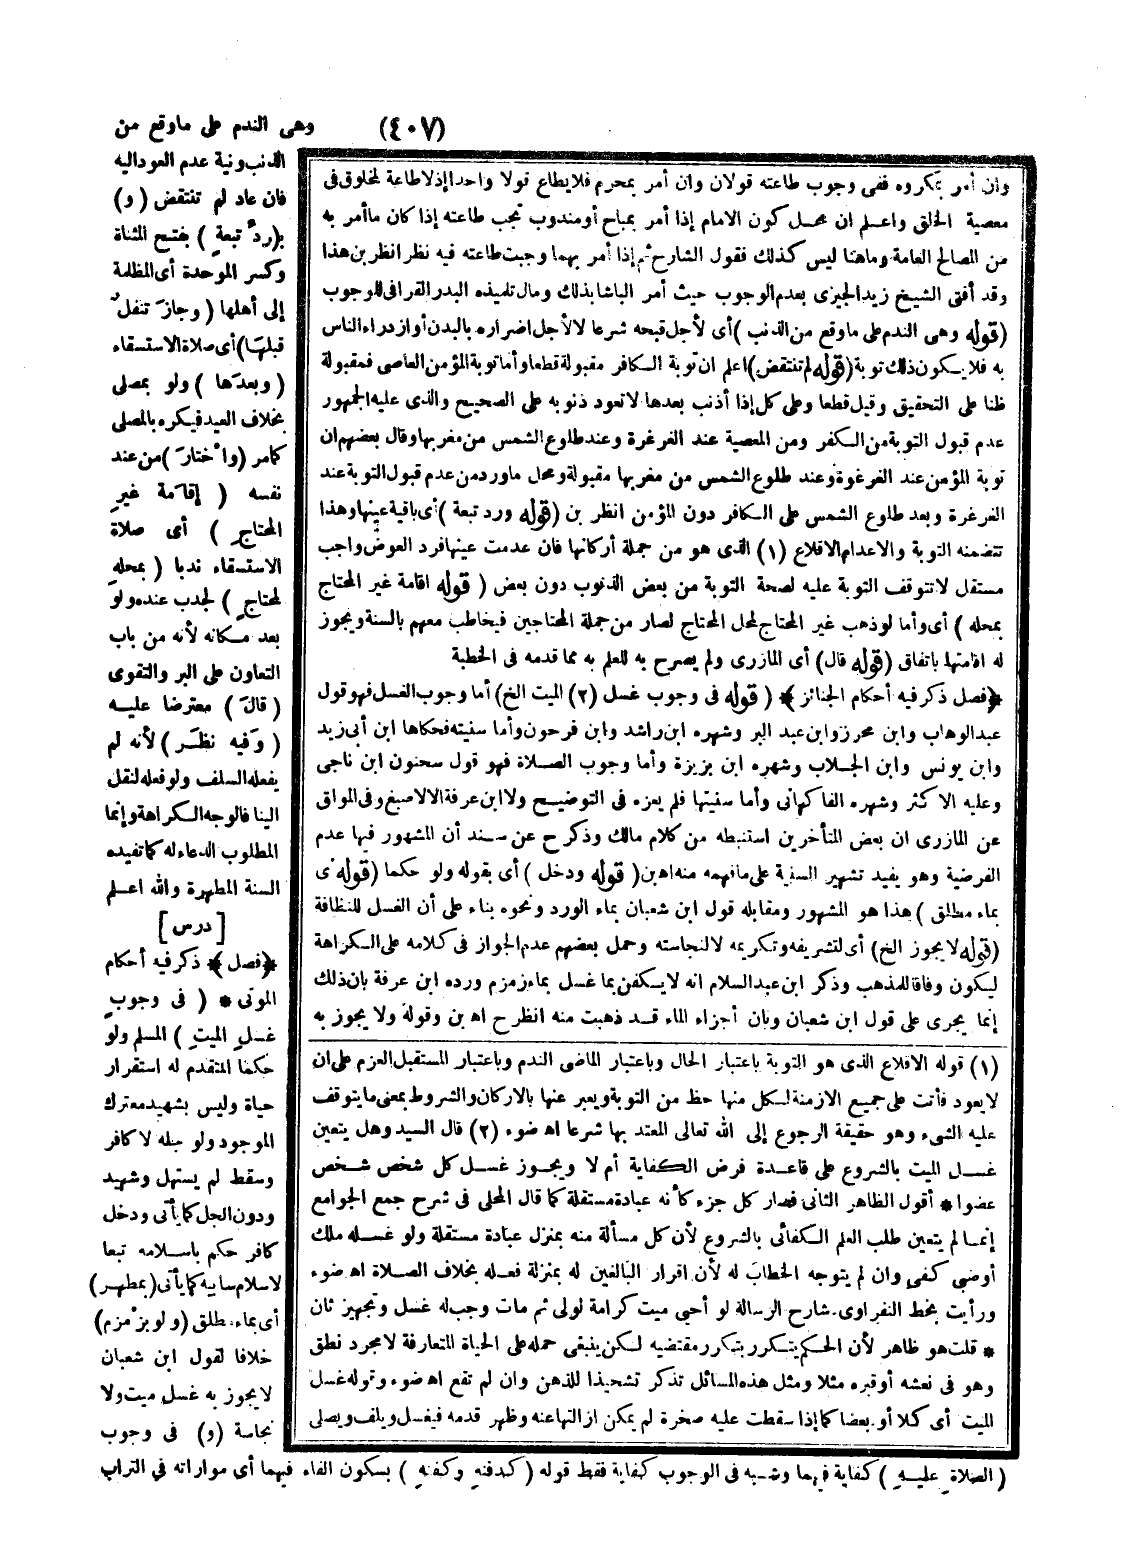 (٤٠٧)
وهى الندم على ماوقع من
الذنب ونية عدم العود اليه
فان عاد لم تنتقض (و)
ب(رد تبعة) بفتح المثناة
وكسر الموحدة أى المظلمة
إلى أهلها (وجاز تنفل
قبلها) أى صلاة الاستسقاء
(وبعدها) ولو بمصلى
بخلاف العيد فيكره بالمصلى
كمامر (واختار) من عند
نفسه (إقامة غير
المحتاج) أى صلاة
الاستسقاء ندبا (بمحله
لمحتاج) لجدب عنده ولو
بعد مكانه لأنه من باب
التعاون على البر والتقوى
(قال) معترضا عليه
(وفيه نظر) لأنه لم
يفعله السلف ولو فعله لنقل
الينا فالوجه الكراهة وإنما
المطلوب الدعاء له كما تفيده
السنة المطهرة والله اعلم
[درس]
﴿فصل﴾ ذكر فيه أحكام
الموتى * (فى وجوب
غسل الميت) المسلم ولو
حكما المتقدم له استقرار
حياة وليس بشهيد معترك
الموجود ولو جله لا كافر
وسقط لم يستهل وشهيد
ودون الجل كما يأتى ودخل
كافر حكم باسلامه تبعا
لاسلام سابيه كما يأتى (بمطهر)
أى بماء مطلق (ولو بزمزم)
خلافا لقول ابن شعبان
لا يجوز به غسل ميت ولا
نجاسة (و) فى وجوب
(الصلاة عليه) كفاية فيهما وشبه فى الوجوب كفاية فقط قوله (كدفنه وكفنه) بسكون الفاء فيهما أى مواراته في التراب
وان أمر بمكروه ففى وجوب طاعته قولان وان أمر بمحرم فلا يطاع قولا واحدا إذ لا طاعة لمخلوق فى
معصية الخالق واعلم ان محل كون الامام إذا أمر بمباح أو مندوب تجب طاعته إذا كان ما أمر به
من المصالح العامة وماهنا ليس كذلك فقول الشارح ثم إذا أمر بهما وجبت طاعته فيه نظر انظر بن هذا
وقد أفتى الشيخ زيد الجيزى بعدم الوجوب حيث أمر الباشا بذلك ومال تلميذه البدر القرافى للوجوب
(قوله وهى الندم على ماوقع من الذنب) أى لأجل قبحه شرعا لا لأجل اضراره بالبدن أو ازدراء الناس
به فلا يكون ذلك توبة (قوله لم تنتقض) اعلم ان توبة الكافر مقبولة قطعا وأما توبة المؤمن العاصى فمقبولة
ظنا على التحقيق وقيل قطعا وعلى كل إذا أذنب بعدها لا تعود ذنوبه على الصحيح والذى عليه الجمهور
عدم قبول التوبة من الكفر ومن المعصية عند الغرغرة وعند طلوع الشمس من مغربها وقال بعضهم ان
توبة المؤمن عند الغرغرة وعند طلوع الشمس من مغربها مقبولة ومحل ماورد من عدم قبول التوبة عند
الغرغرة وبعد طلوع الشمس على الكافر دون المؤمن انظر بن (قوله ورد تبعة) أى باقية عينها وهذا
تتضمنه التوبة والا عدام الاقلاع (١) الذى هو من جملة أركانها فان عدمت عينها فرد العوض واجب
مستقل لا تتوقف التوبة عليه لصحة التوبة من بعض الذنوب دون بعض (قوله اقامة غير المحتاج
بمحله) أى وأما لو ذهب غير المحتاج لمحل المحتاج لصار من جملة المحتاجين فيخاطب معهم بالسنة ويجوز
له اقامتها باتفاق (قوله قال) أى المازرى ولم يصرح به للعلم به مما قدمه فى الخطبة
﴿فصل ذكر فيه أحكام الجنائز﴾ (قوله فى وجوب غسل (٢) الميت الخ) أما وجوب الغسل فهو قول
عبد الوهاب وابن محرز وابن عبد البر وشهره ابن راشد وابن فرحون وأما سنيته فحكاها ابن أبى زيد
وابن يونس وابن الجلاب وشهره ابن بزيزة وأما وجوب الصلاة فهو قول سحنون ابن ناجى
وعليه الاكثر وشهره الفاكهانى وأما سنيتها فلم يعزه فى التوضيح ولا ابن عرفة الا لاصبغ وفى المواق
عن المازرى ان بعض المتأخرين استنبطه من كلام مالك وذكر ح عن سند أن المشهور فيها عدم
الفرضية وهو يفيد تشهير السنية على مافهمه منه اه بن (قوله ودخل) أى بقوله ولو حكما (قوله أى
بماء مطلق) هذا هو المشهور ومقابله قول ابن شعبان بماء الورد ونحوه بناء على أن الغسل للنظافة
(قوله لا يجوز الخ) أى لتشريفه وتكريمه لا لنجاسته وحمل بعضهم عدم الجواز فى كلامه على الكراهة
ليكون وفاقا للمذهب وذكر ابن عبد السلام انه لا يكفن بما غسل بماء زمزم ورده ابن عرفة بان ذلك
إنما يجرى على قول ابن شعبان وبان أجزاء الماء قد ذهبت منه انظر ح اه بن وقوله ولا يجوز به
(١) قوله الاقلاع الذى هو التوبة باعتبار الحال وباعتبار الماضى الندم وباعتبار المستقبل العزم على ان
لا يعود فأتت على جميع الازمنة لكل منها حظ من التوبة ويعبر عنها بالاركان والشروط بمعنى ما يتوقف
عليه الشىء وهو حقيقة الرجوع إلى الله تعالى المعتد بها شرعا اه ضوء (٢) قال السيد وهل يتعين
غسل الميت بالشروع على قاعدة فرض الكفاية أم لا ويجوز غسل كل شخص شخص
عضوا * أقول الظاهر الثانى فصار كل جزء كأنه عبادة مستقلة كما قال المحلى فى شرح جمع الجوامع
إنما لم يتعين طلب العلم الكفائى بالشروع لأن كل مسألة منه بمنزل عبادة مستقلة ولو غسله ملك
أو ضبى كفى وان لم يتوجه الخطاب له لأن اقرار البالغين له بمنزلة فعله بخلاف الصلاة اه ضوء
ورأيت بخط النفراوى شارح الرسالة لو أحيى ميت كرامة لولى ثم مات وجب له غسل وتجهيز ثان
* قلت هو ظاهر لأن الحكم يتكرر بتكرر مقتضيه لكن ينبغى حمله على الحياة المتعارفة لا مجرد نطق
وهو فى نعشه أو قبره مثلا ومثل هذه المسائل تذكر تشحيذا للذهن وان لم تقع اه ضوء وقوله غسل
الميت أى كلا أو بعضا كما إذا سقطت عليه صخرة لم يمكن ازالتها عنه وظهر قدمه فيغسل ويلف ويصلى